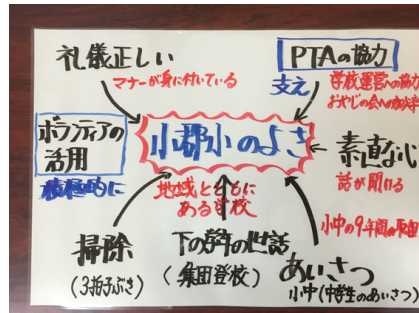 礼儀正しい
マナーが身に付いている
PTAの協力
支え
学校運営への協力
おやじの会への加入
ボランティアの
活用
積極的に
小郡小のよさ
地域とともに
ある学校
素直な心
話が聞ける
小中の9年間の
掃除
(3拍子ぶき)
下の学年の世話
(集団登校)
あいさつ
小中(中学生のあいさつ)